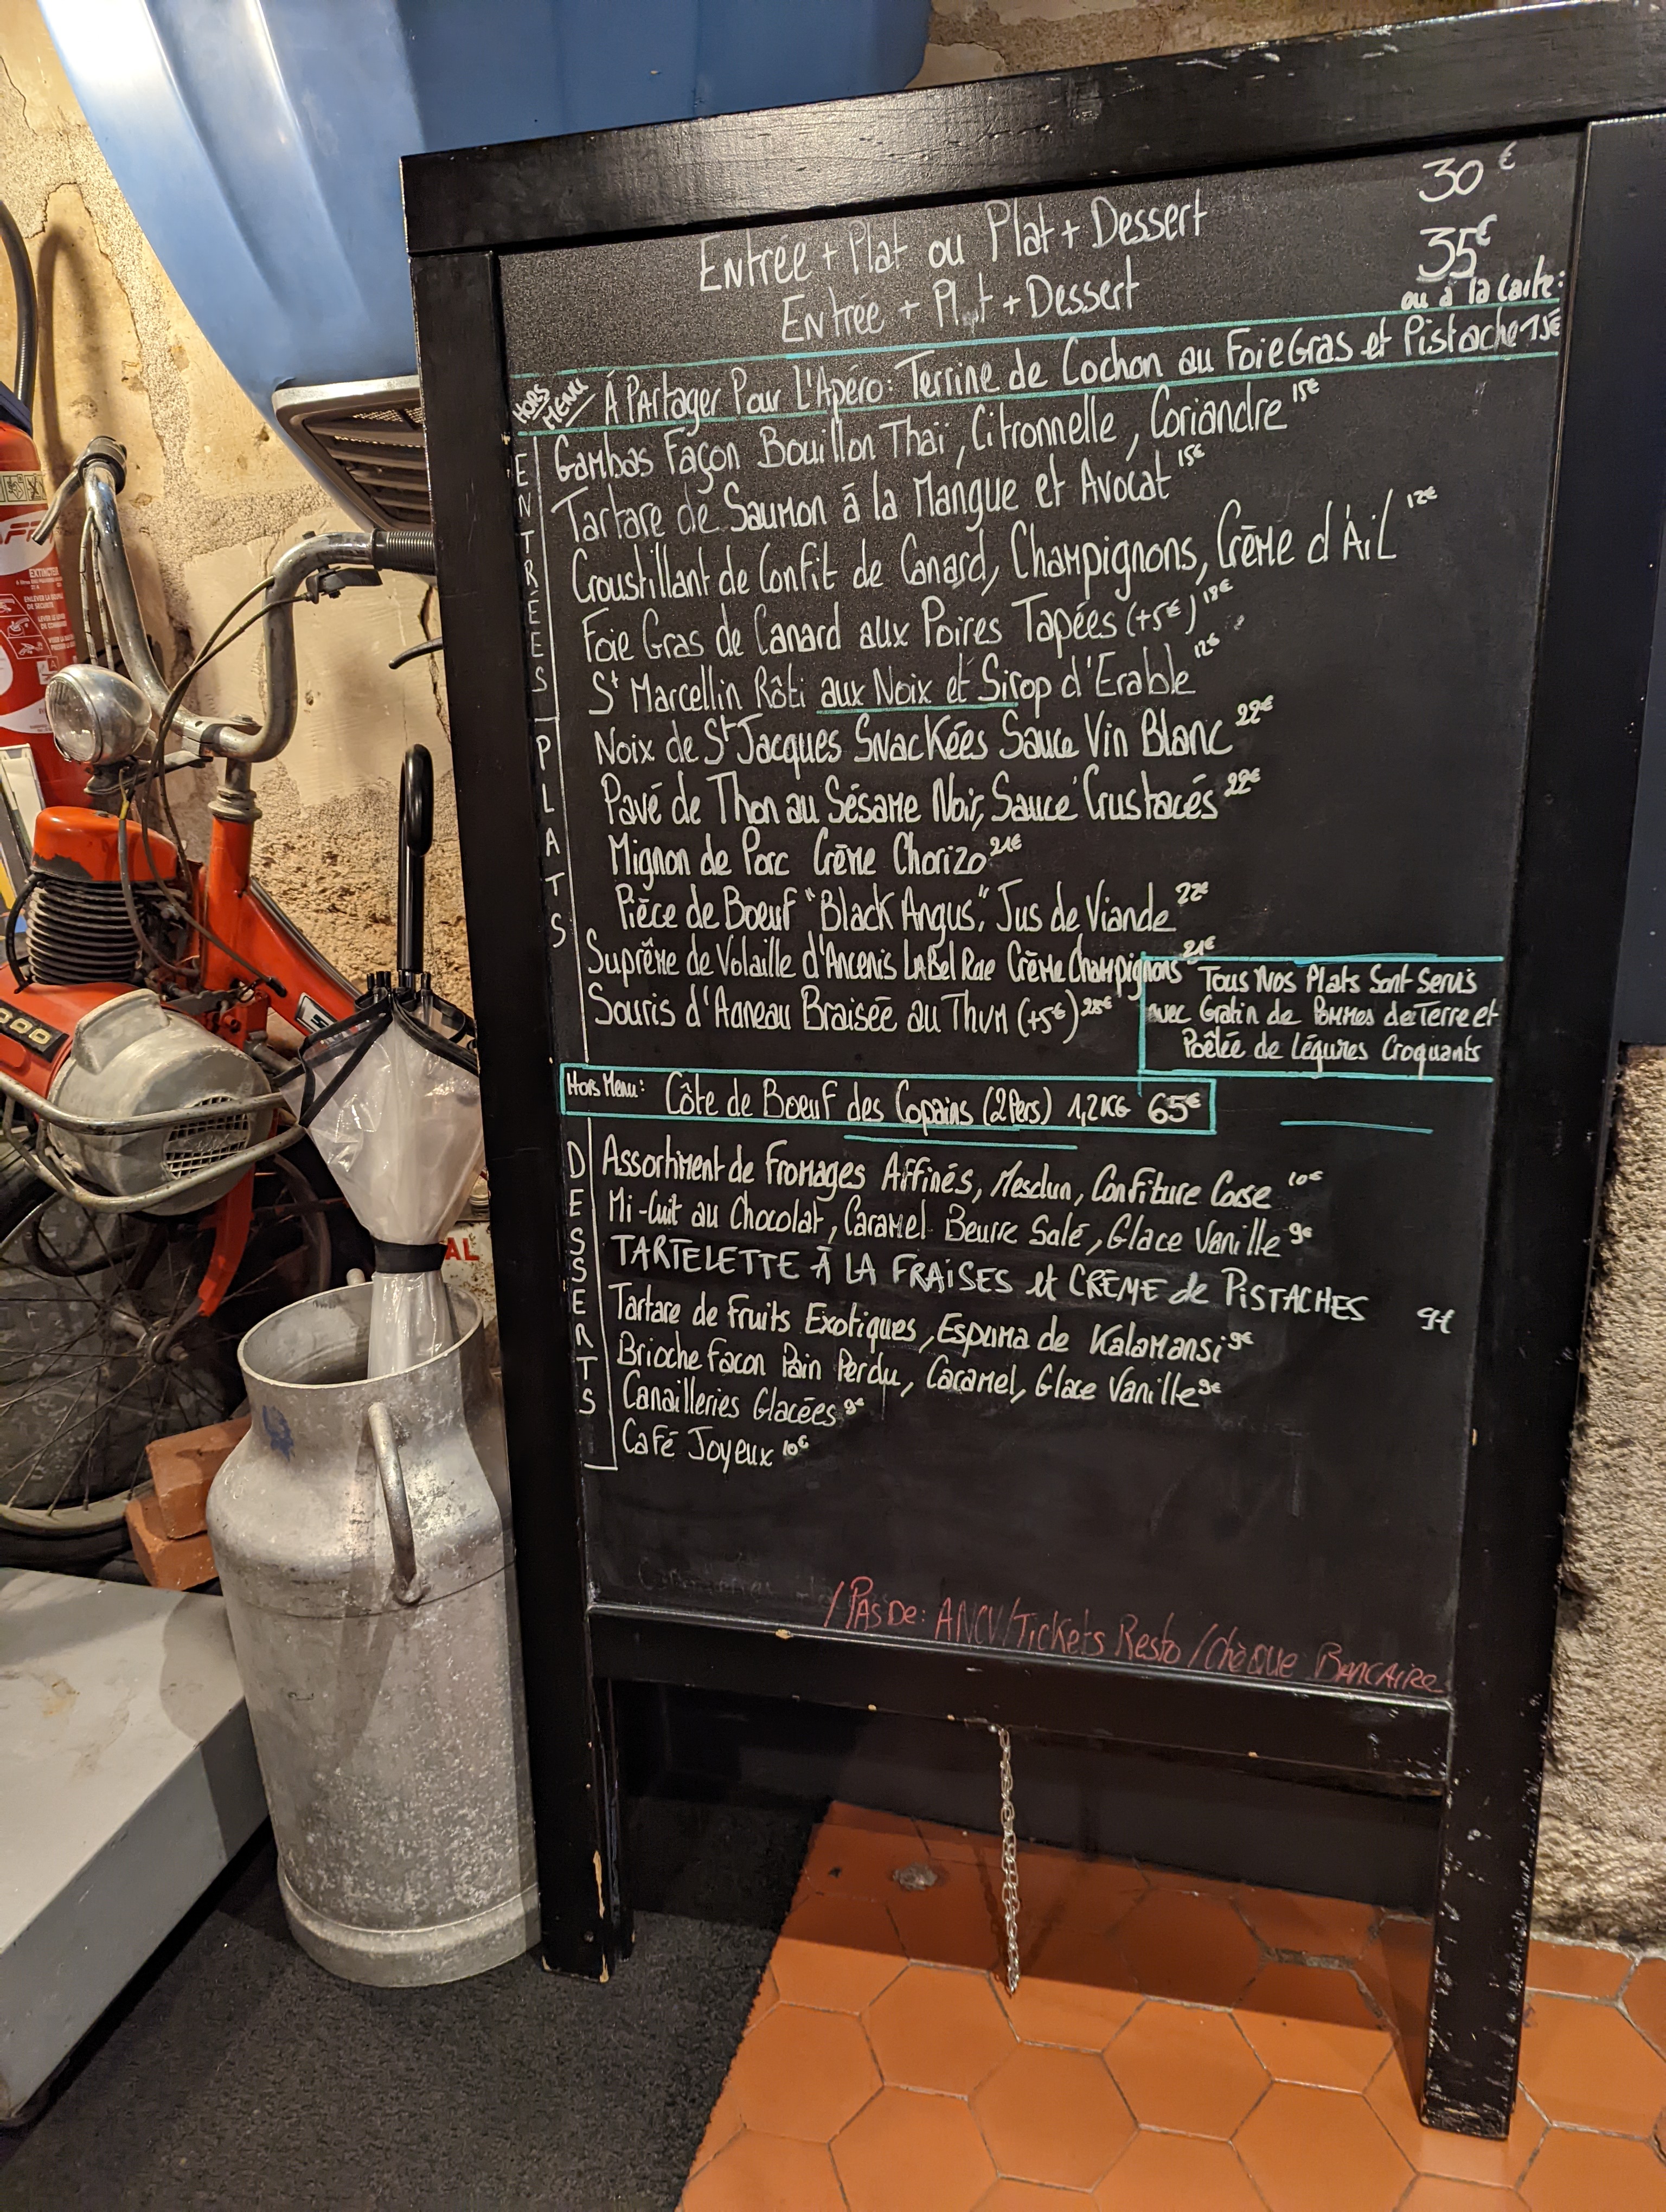 30 €
Entrée + Plat ou Plat + Dessert
35€
Entrée + Plat + Dessert
ou à la carte:
HORS MENU À PArtager Pour L'Apéro: Terrine de Cochon au Foie Gras et Pistache 15€
ENTRÉES
Gambas Façon Bouillon Thaï, Citronnelle, Coriandre 15€
Tartare de Saumon à la Mangue et Avocat 15€
Croustillant de Confit de Canard, Champignons, Crème d'Ail 12€
Foie Gras de Canard aux Poires Tapées (+5€) 18€
St Marcellin Rôti aux Noix et Sirop d'Erable 12€
PLATS
Noix de St Jacques Snackées Sauce Vin Blanc 22€
Pavé de Thon au Sésame Noir, Sauce Crustacés 22€
Mignon de Porc Crème Chorizo 21€
Pièce de Boeuf "Black Angus", Jus de Viande 22€
Suprême de Volaille d'Ancenis Label Rge Crème Champignons 21€
Souris d'Agneau Braisée au Thym (+5€) 25€
Tous Nos Plats Sont Servis
avec Gratin de Pommes de Terre et
Poêlée de Légumes Croquants
Hors Menu: Côte de Boeuf des Copains (2 Pers) 1,2 KG 65€
DESSERTS
Assortiment de Fromages Affinés, Mesclun, Confiture Corse 10€
Mi-Cuit au Chocolat, Caramel Beurre Salé, Glace Vanille 9€
TARTELETTE À LA FRAISES et CRÈME de PISTACHES 9€
Tartare de Fruits Exotiques, Espuma de Kalamansi 9€
Brioche Facon Pain Perdu, Caramel, Glace Vanille 9€
Canailleries Glacées 9€
Café Joyeux 10€
/PAS De: ANCV/Tickets Resto /Chèque BANCAIRe
EXTINCTEUR
1000